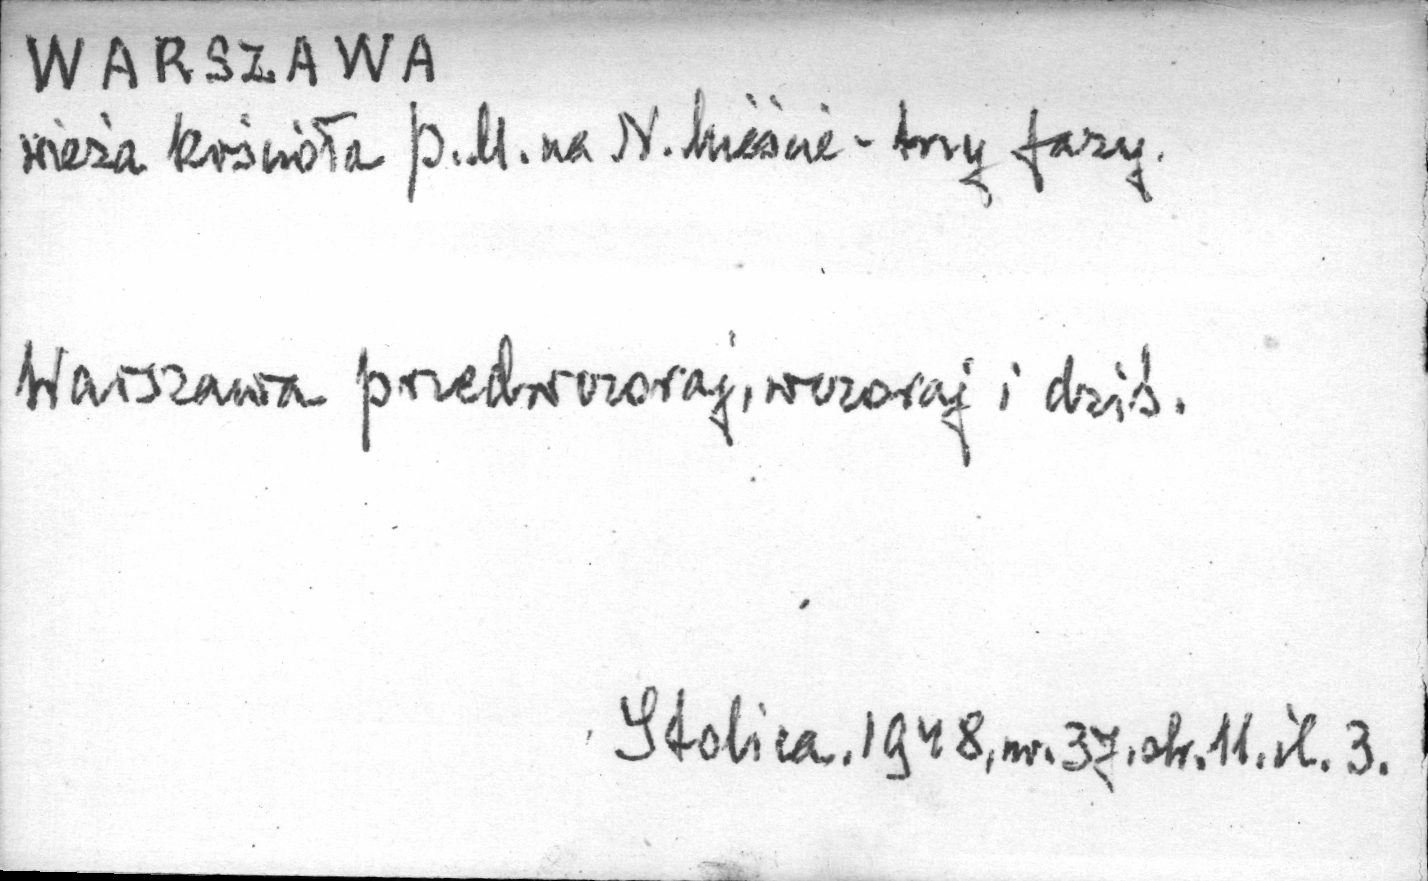 WARSZAWA
wieża kościoła P.M. na N. Mieście - trzy fazy.
Warszawa przedwczoraj, wczoraj i dziś.
Stolica. 1948, nr. 37. str. 11. il. 3.